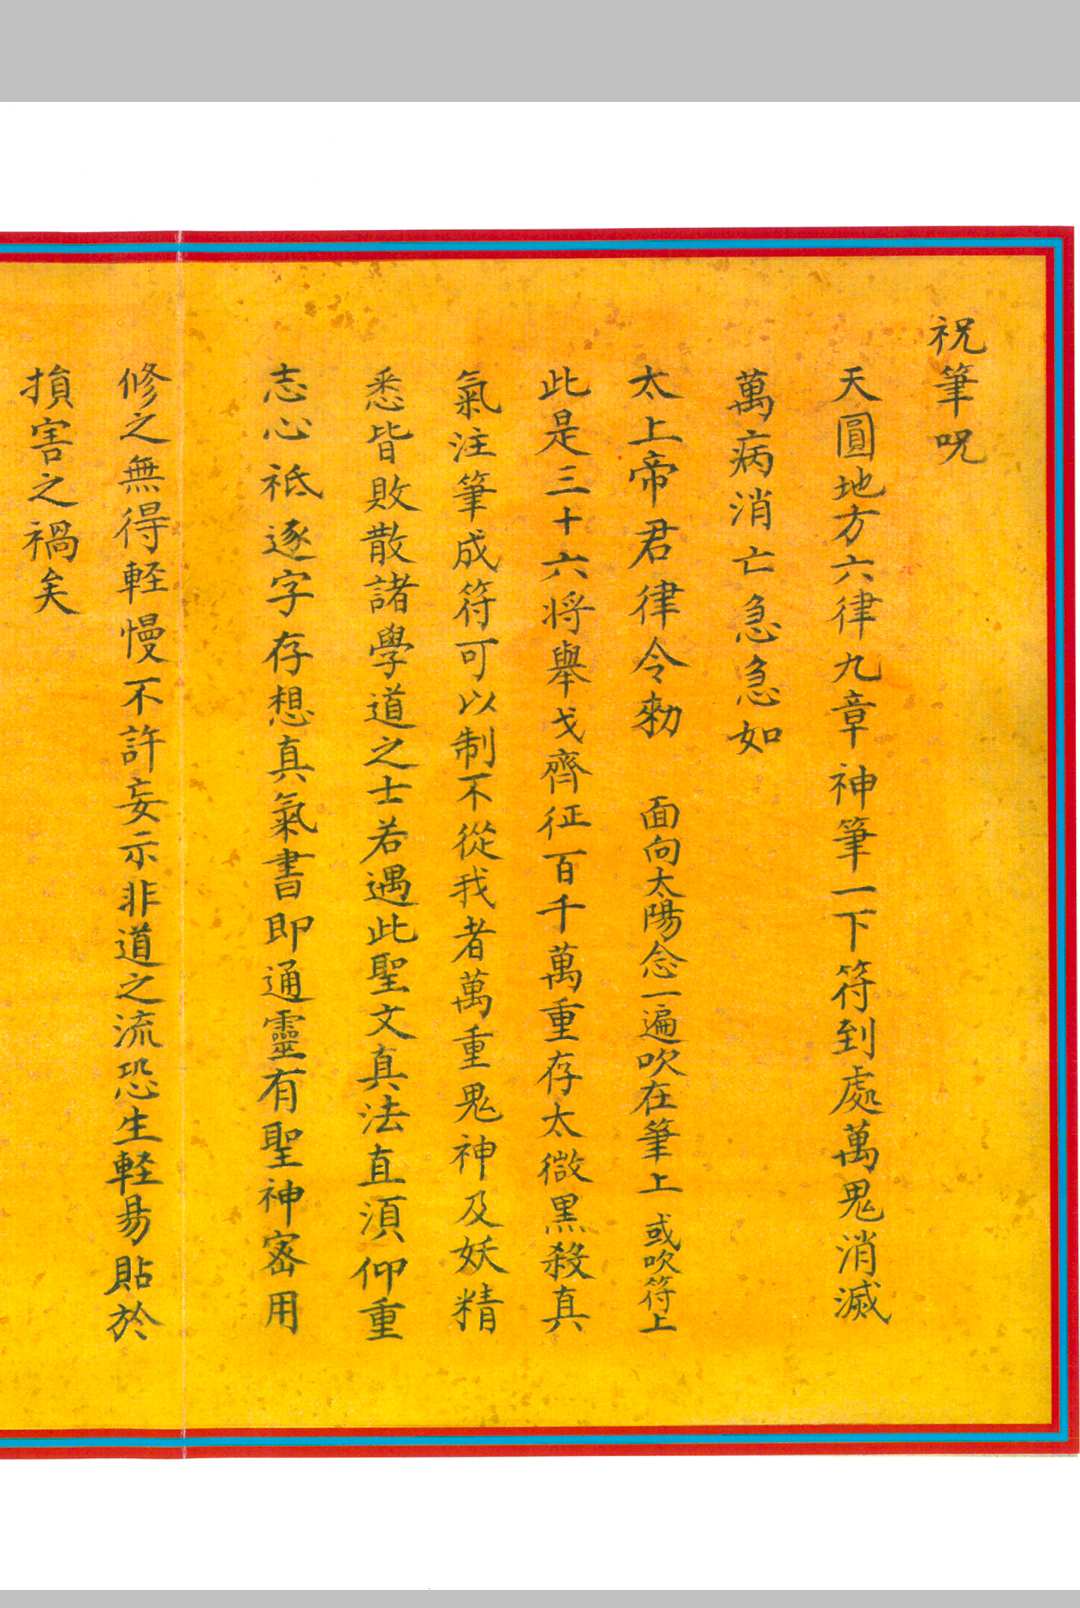 祝筆呪
天圓地方六律九章神筆一下符到處萬鬼消滅
萬病消亡急急如
太上帝君律令勑　面向太陽念一遍吹在筆上　或吹符上
此是三十六将舉戈齊征百千萬重存太微黒殺真
氣注筆成符可以制不從我者萬重鬼神及妖精
悉皆敗散諸學道之士若遇此聖文真法直須仰重
志心祗逐字存想真氣書即通靈有聖神密用
修之無得軽慢不許妄示非道之流恐生軽易貼於
損害之禍矣